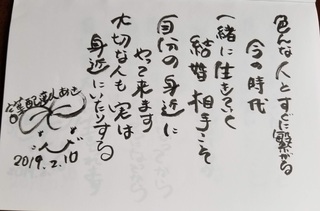 色んな人とすぐに繋がる
今の時代
一緒に生きていく
結婚相手こそ
自分の身近に
やって来ます
大切な人も実は
身近にいたりする
宅配達人あき
2019.2.10